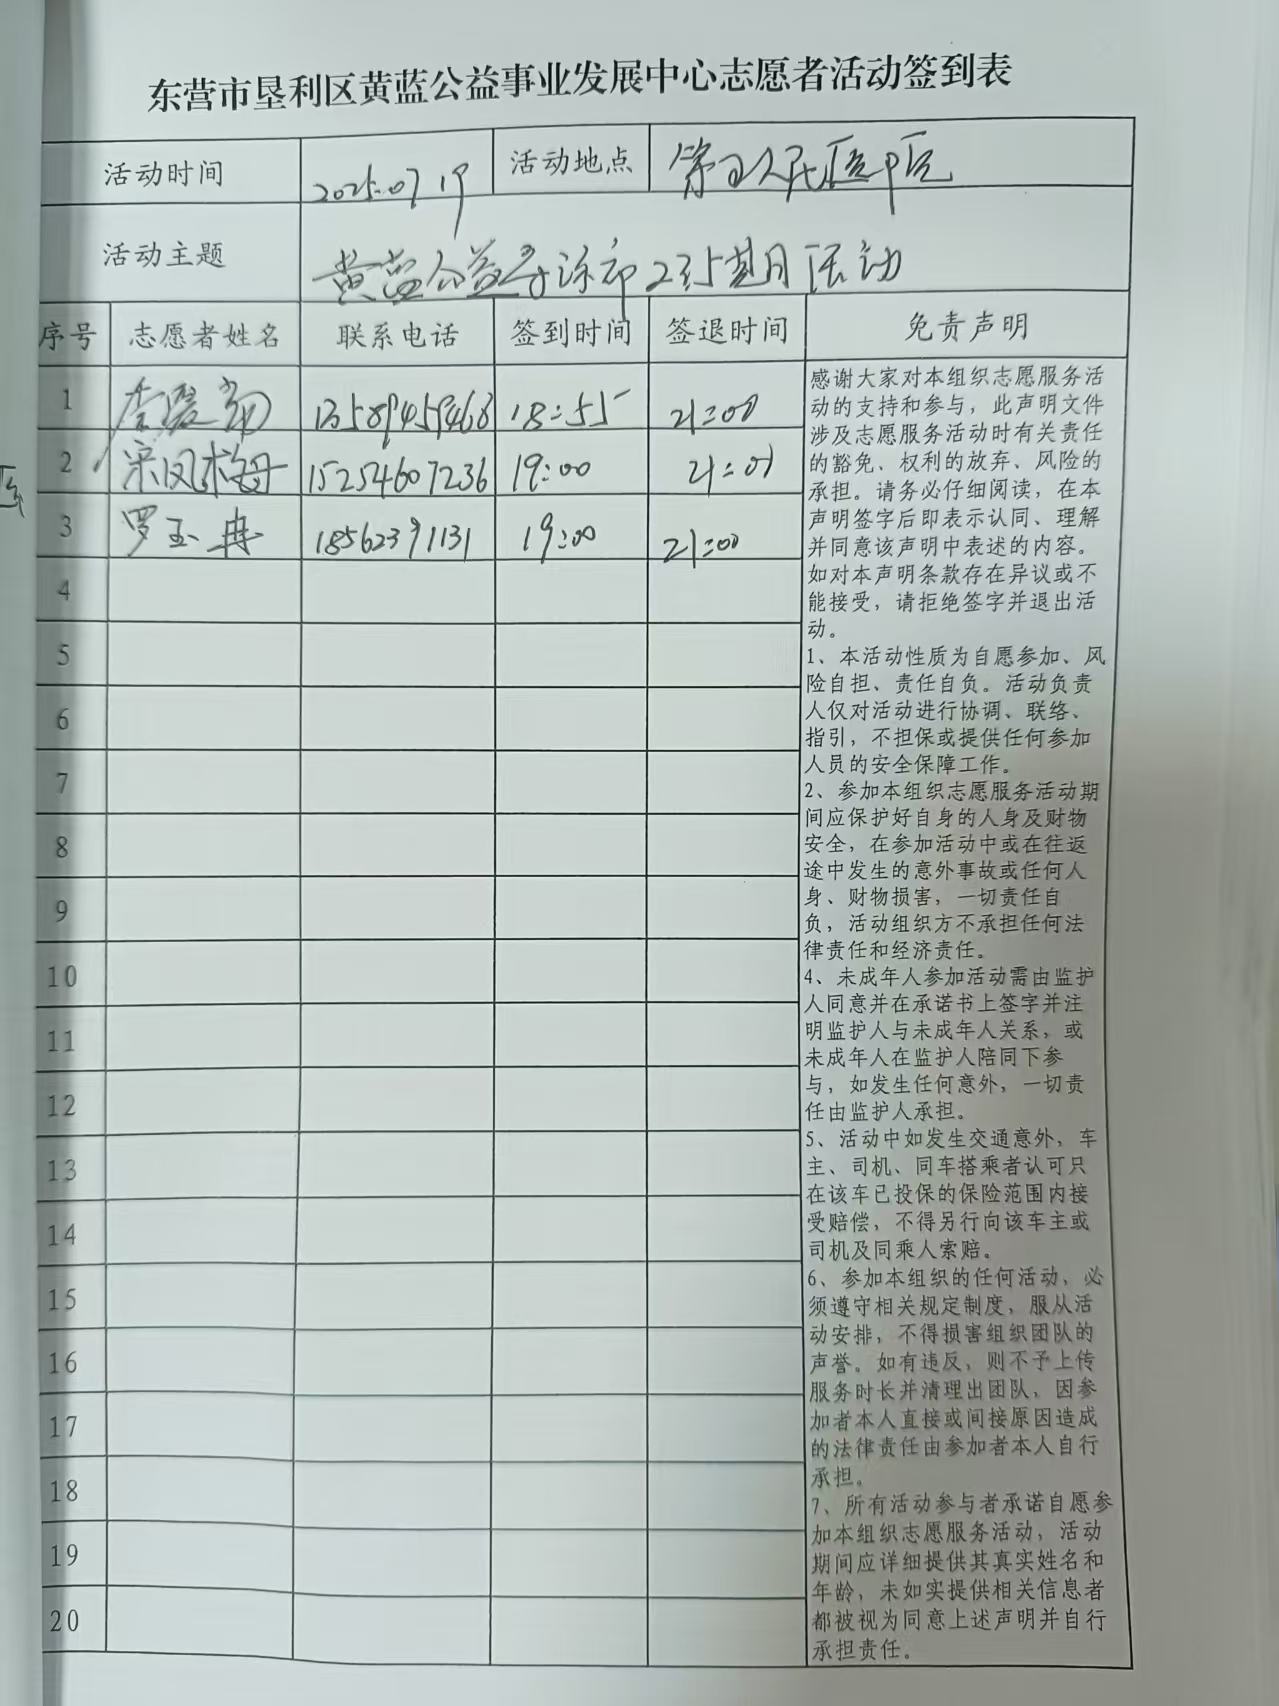 东营市垦利区黄蓝公益事业发展中心志愿者活动签到表
活动时间 2025.07.19 活动地点 人民医院
活动主题 黄蓝公益 活动
序号 志愿者姓名 联系电话 签到时间 签退时间 免责声明
1 李爱 13589459468 18:55 21:00
2 宋凤梅 15254607236 19:00 21:01
3 罗玉冉 18562391131 19:00 21:00
4
5
6
7
8
9
10
11
12
13
14
15
16
17
18
19
20
感谢大家对本组织志愿服务活
动的支持和参与，此声明文件
涉及志愿服务活动时有关责任
的豁免、权利的放弃、风险的
承担。请务必仔细阅读，在本
声明签字后即表示认同、理解
并同意该声明中表述的内容。
如对本声明条款存在异议或不
能接受，请拒绝签字并退出活
动。
1、本活动性质为自愿参加、风
险自担、责任自负。活动负责
人仅对活动进行协调、联络、
指引，不担保或提供任何参加
人员的安全保障工作。
2、参加本组织志愿服务活动期
间应保护好自身的人身及财物
安全，在参加活动中或在往返
途中发生的意外事故或任何人
身、财物损害，一切责任自
负，活动组织方不承担任何法
律责任和经济责任。
4、未成年人参加活动需由监护
人同意并在承诺书上签字并注
明监护人与未成年人关系，或
未成年人在监护人陪同下参
与，如发生任何意外，一切责
任由监护人承担。
5、活动中如发生交通意外，车
主、司机、同车搭乘者认可只
在该车已投保的保险范围内接
受赔偿，不得另行向该车主或
司机及同乘人索赔。
6、参加本组织的任何活动，必
须遵守相关规定制度，服从活
动安排，不得损害组织团队的
声誉。如有违反，则不予上传
服务时长并清理出团队，因参
加者本人直接或间接原因造成
的法律责任由参加者本人自行
承担。
7、所有活动参与者承诺自愿参
加本组织志愿服务活动，活动
期间应详细提供其真实姓名和
年龄，未如实提供相关信息者
都被视为同意上述声明并自行
承担责任。